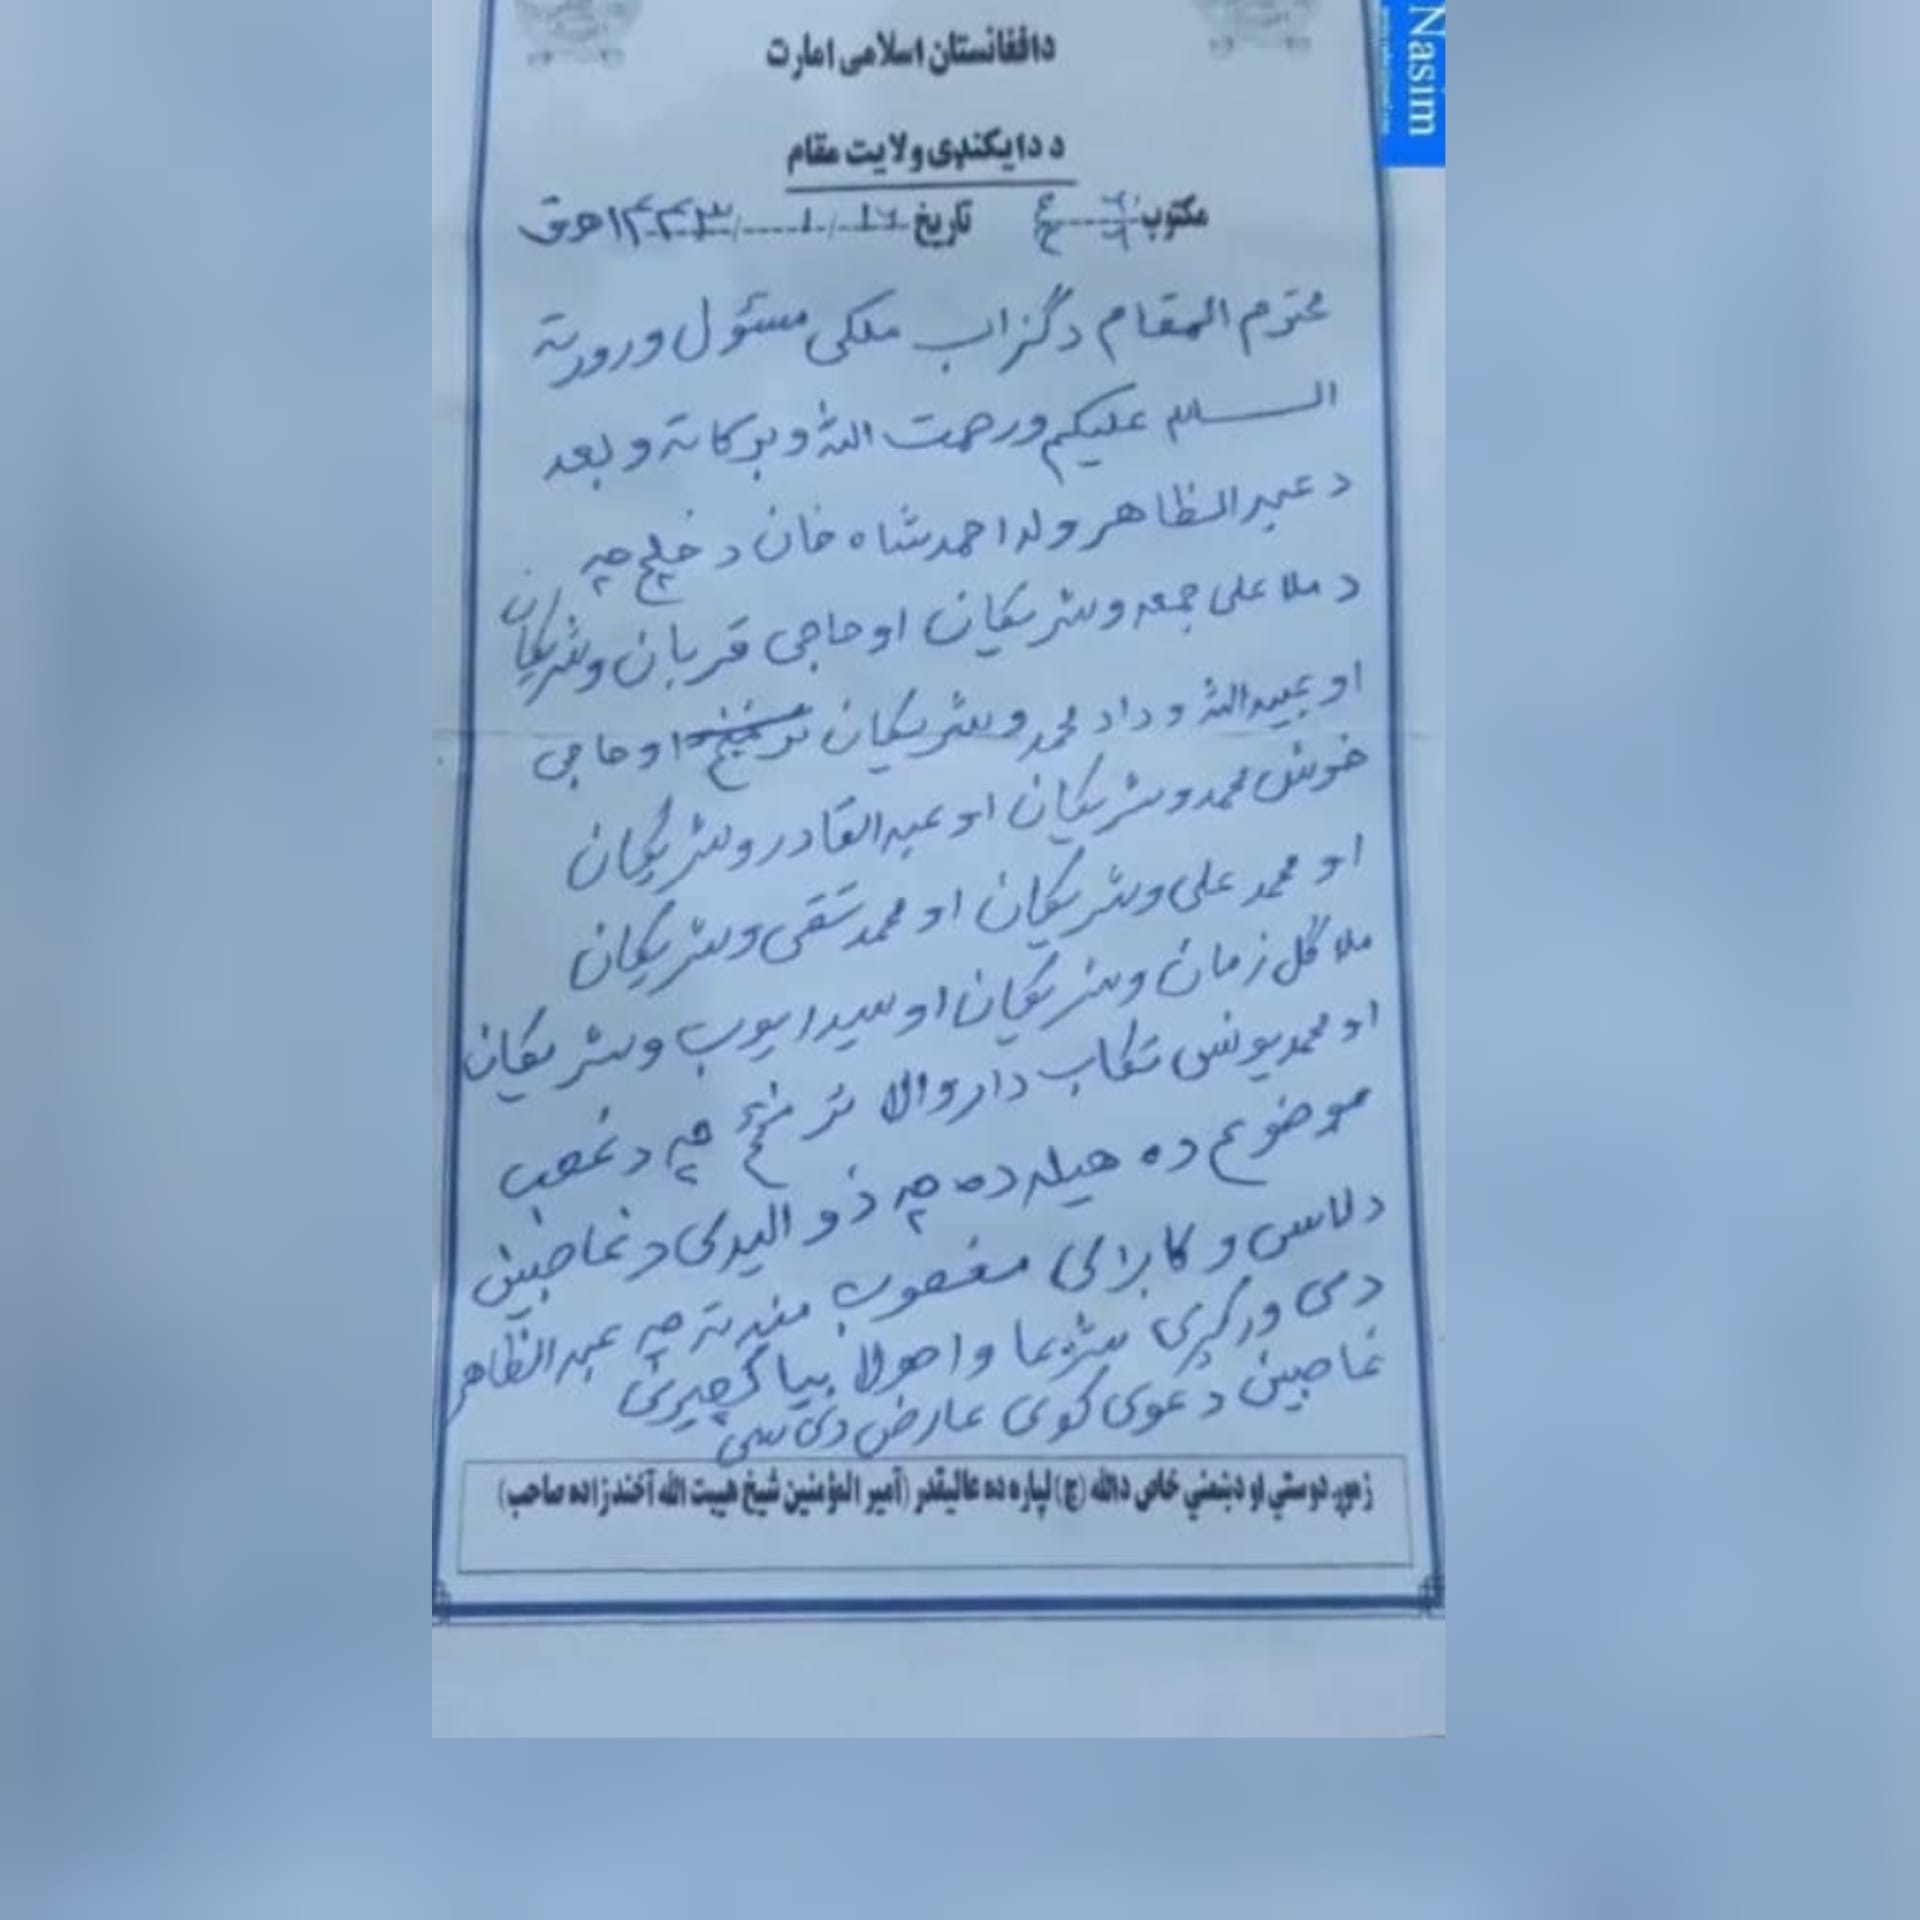 دافغانستان اسلامی امارت
د دایکنډی ولایت مقام
مکتوب تاریخ ۱۶/۱/۱۴۴۳ هـ ق
محترم المقام د گزاب ملکی مسئول ورور ته
السلام علیکم ورحمت الله وبرکاته وبعد
د عبدالظاهر ولد احمدشاه خان د خلج چه
د ملا علی جمعه وشریکان او حاجی قربان وشریکان
او عبیدالله و داد محمد وشریکان او حاجی
خوش محمد وشریکان او عبدالقادر وشریکان
او محمد علی وشریکان او محمد تقی وشریکان
ملا گل زمان وشریکان او سید ایوب وشریکان
او محمد یونس تکاب دار والا تر منځ چه د غصب
موضوع ده هیله ده چه ذو الیدی د غاصبین
د لاس و کابرا کی مغصوب منه ته چه عبدالظاهر
دمی ورکړی شرعا و اصولا بیا کچیری
غاصبین دعوی کوی عارض دی سی
زموږ دوستي او دښمني خاص دالله (ج) لپاره ده عالیقدر (امیر المؤمنین شیخ هیبت الله آخندزاده صاحب)
Nasim